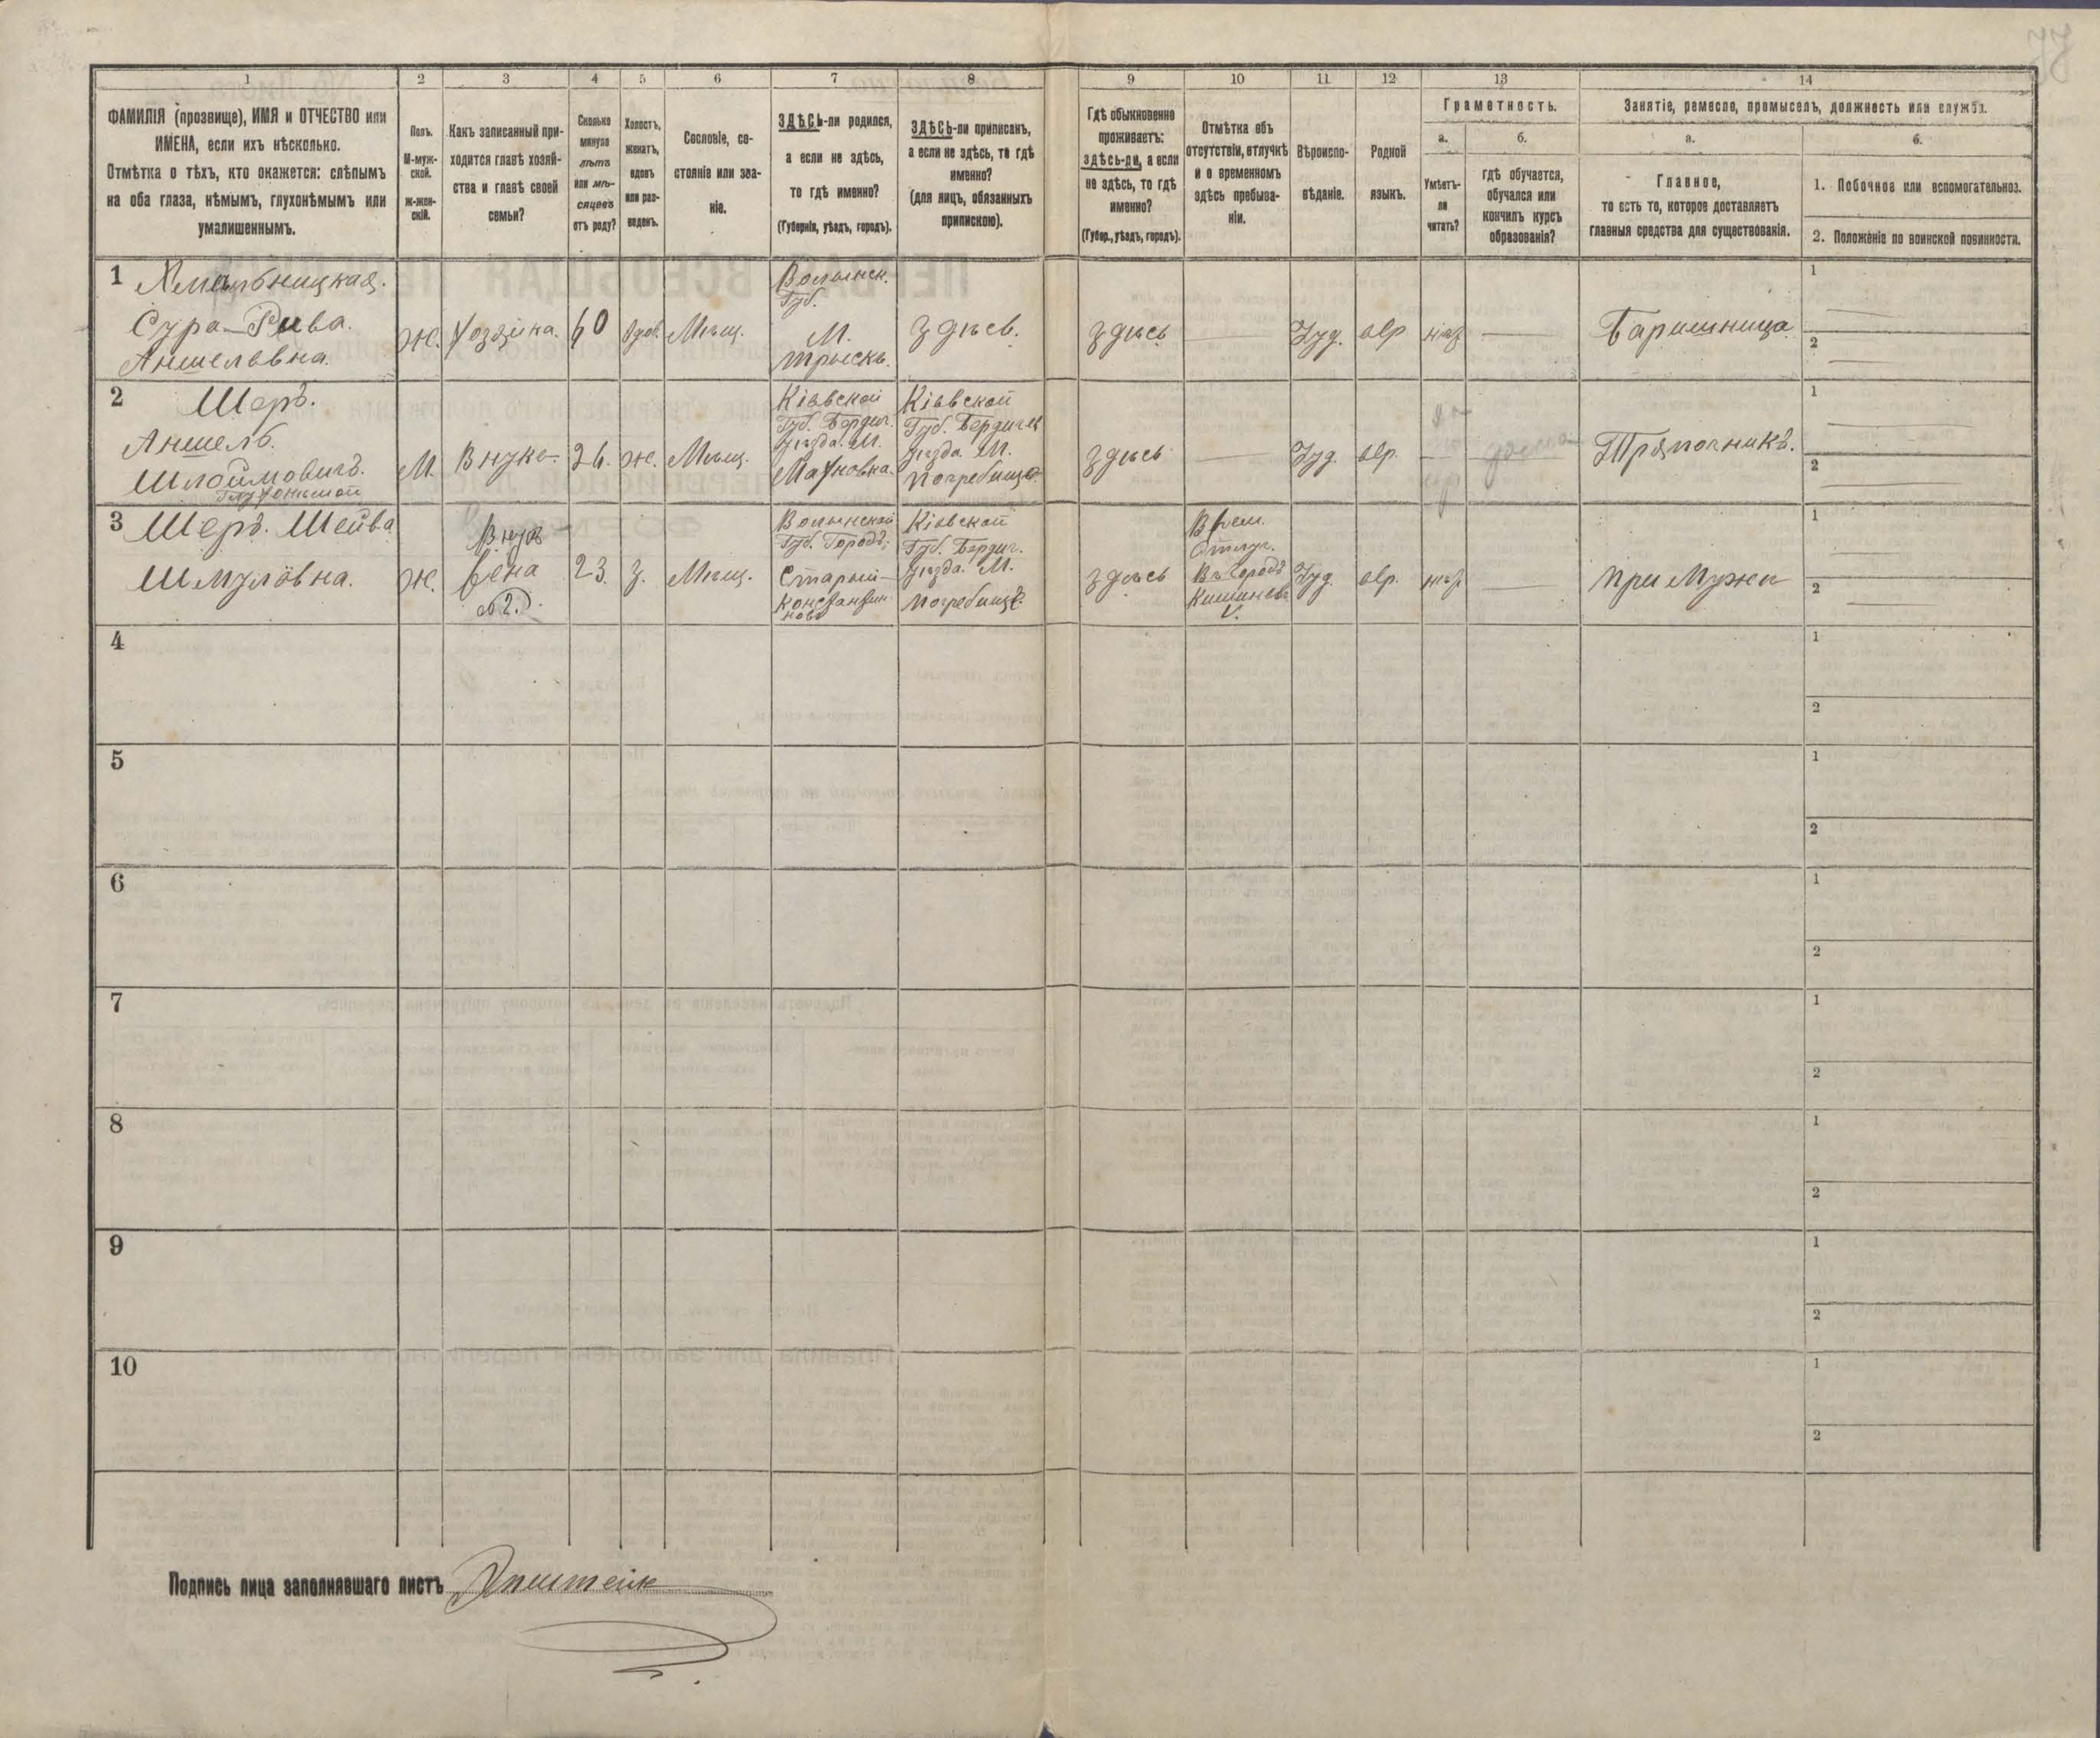 1 2 3 4 5 6 7 8 9 10 11 12 13 14
ФАМИЛІЯ (прозвище), ИМЯ и ОТЧЕСТВО или
ИМЕНА, если ихъ нѣсколько.
Отмѣтка о тѣхъ, кто окажется: слѣпымъ
на оба глаза, нѣмымъ, глухонѣмымъ или
умалишеннымъ.
Полъ.
М-муж-
ской.
ж-жен-
скій.
Какъ записанный при-
ходится главѣ хозяй-
ства и главѣ своей
семьи?
Сколько
минуло
лѣтъ
или мѣ-
сяцевъ
отъ роду?
Холостъ,
женатъ,
вдовъ
или раз-
веденъ.
Сословіе, со-
стояніе или зва-
ніе.
ЗДѢСЬ-ли родился,
а если не здѣсь,
то гдѣ именно?
(Губернія, уѣздъ, городъ).
ЗДѢСЬ-ли приписанъ,
а если не здѣсь, то гдѣ
именно?
(для лицъ, обязанныхъ
припискою).
Гдѣ обыкновенно
проживаетъ:
здѣсь-ли, а если
не здѣсь, то гдѣ
именно?
(Губер., уѣздъ, городъ).
Отмѣтка объ
отсутствіи, отлучкѣ
и о временномъ
здѣсь пребыва-
ніи.
Вѣроиспо-
вѣданіе.
Родной
языкъ.
Грамотность.
а.
Умѣетъ-
ли
читать?
б.
гдѣ обучается,
обучался или
кончилъ курсъ
образованія?
Занятіе, ремесло, промыселъ, должность или служба.
а.
Главное,
то есть то, которое доставляетъ
главныя средства для существованія.
б.
1. Побочное или вспомогательное.
2. Положеніе по воинской повинности.
1 Хмельницкая.
Сура-Рива.
Аншелевна.
Ж.
Хозяйка.
60
Вдов.
Мѣщ.
Волынск.
Губ.
М.
Трыскъ.
Здѣсь.
Здѣсь
Іуд.
евр
нѣт
Баришница
1
2
2 Шеръ.
Аншель.
Шлоймовичъ.
Глухонѣмой
М.
Внукъ.
26.
Ж.
Мѣщ.
Кіевской
Губ. Бердич.
уѣзда. М.
Махновка.
Кіевской
Губ. Бердич
уѣзда. М.
Погребище
Здѣсь
Іуд.
евр.
дома
Тряпочникъ.
1
2
3 Шеръ. Шейва
Шмулевна.
Ж.
Внук
Жена
№2.
23.
З.
Мѣщ.
Волынской
Губ. Городъ.
Старый-
Константи-
новъ
Кіевской
Губ. Бердич.
уѣзда. М.
Погребище
Здѣсь
Врем.
Отлуч.
Въ городъ
Кишиневъ
V.
Іуд.
евр.
нѣт
При Мужи
1
2
4
1
2
5
1
2
6
1
2
7
1
2
8
1
2
9
1
2
10
1
2
Подпись лица заполнявшаго листъ Эпштейн